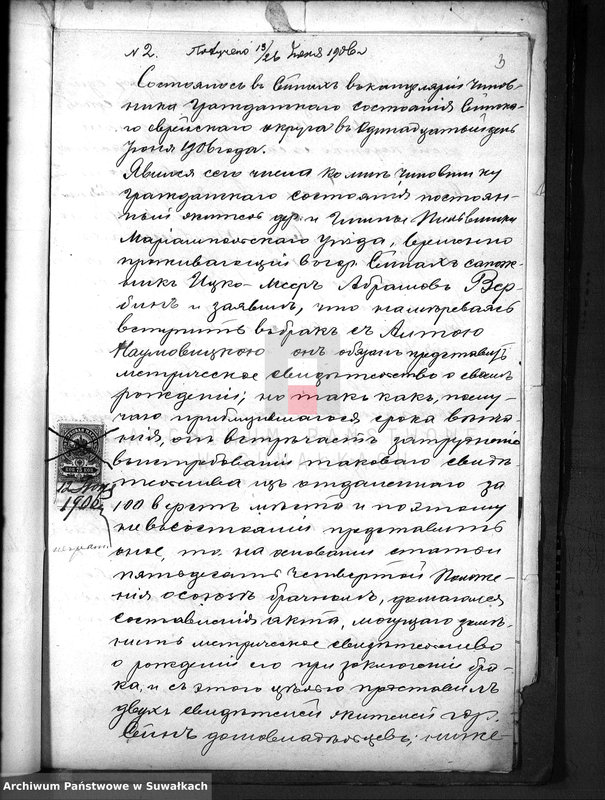 N 2. Получено 13/26 Июня 1906 г.
3
Состоялось въ Сейнахъ въ канцеляріи чинов-
ника гражданскаго состоянія Сейнска-
го еврейскаго округа въ одинадцатый день
Іюня 1906 года.
Явился сего числа ко мнѣ чиновнику
гражданскаго состоянія постоян-
ный житель дер. и гмины Пильвишки
Маріампольскаго уѣзда, временно
проживающій въ гор. Сейнахъ сапож-
никъ Ицко-Мееръ Абрамовъ Вер-
бинъ и заявилъ, что намѣреваясь
вступить въ бракъ съ Алтою
Наумовицкою онъ обязанъ представить
метрическое свидѣтельство о своемъ
рожденіи; но такъ какъ, по слу-
чаю приблизившагося срока вѣнча-
нія, онъ встрѣчаетъ затрудненіе
въ истребованіи таковаго свидѣ-
тельства изъ отдаленнаго за
100 верстъ мѣста и поэтому
не въ состояніи представить
оное, то на основаніи статьи
пятьдесятъ четвертой Положе-
нія о союзѣ брачномъ, домогался
составленія акта, могущаго замѣ-
нить метрическое свидѣтельство
о рожденіи его при заключеніи бра-
ка, и съ этою цѣлью представилъ
двухъ свидѣтелей жителей гор.
Сейнъ домовладѣльцевъ; ниже-
75 КОП
1906 г.
ARCHIWUM PAŃSTWOWE
W SUWAŁKACH
Archiwum Państwowe w Suwałkach